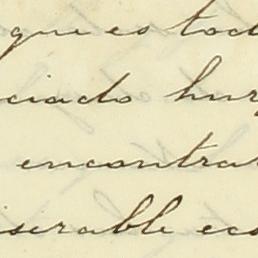 que es tod
ciado hur
encontrar
iserable ecs